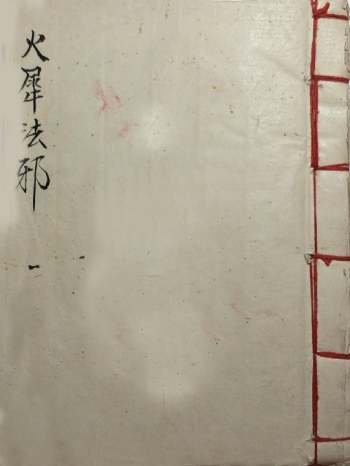 火犀法邪
一